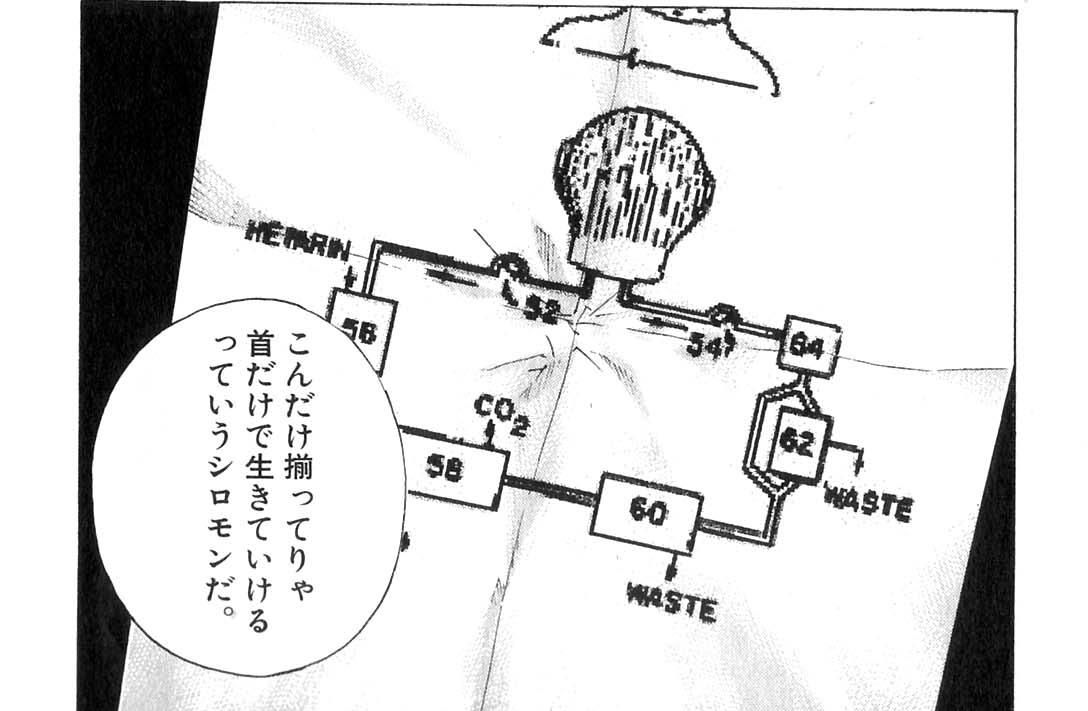 こんだけ揃ってりゃ
首だけで生きていける
っていうシロモンだ。
HEPARIN
56
52
54
64
CO2
58
60
62
WASTE
WASTE